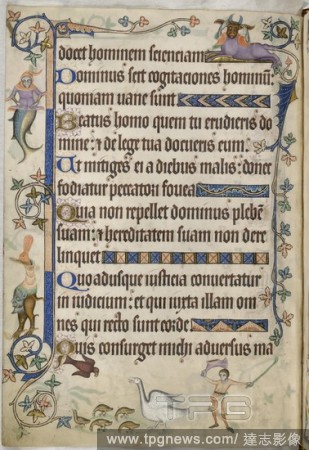 docet hominem scienciam
Dominus scit cogitaciones hominũ:
quoniam uane sunt
Beatus homo quem tu erudieris do
mine: ⁊ de lege tua docueris eum.
Ut mitiges ei a diebus malis: donec
fodiatur peccatori fouea
Quia non repellet dominus plebẽ
suam: ⁊ hereditatem suam non dere
linquet
Quo adusque iusticia conuertatur
in iudicium: et qui iuxta illam om
nes qui recto sunt corde
Quis consurget michi aduersus ma
TPG
www.tpgnews.com / 達志影像